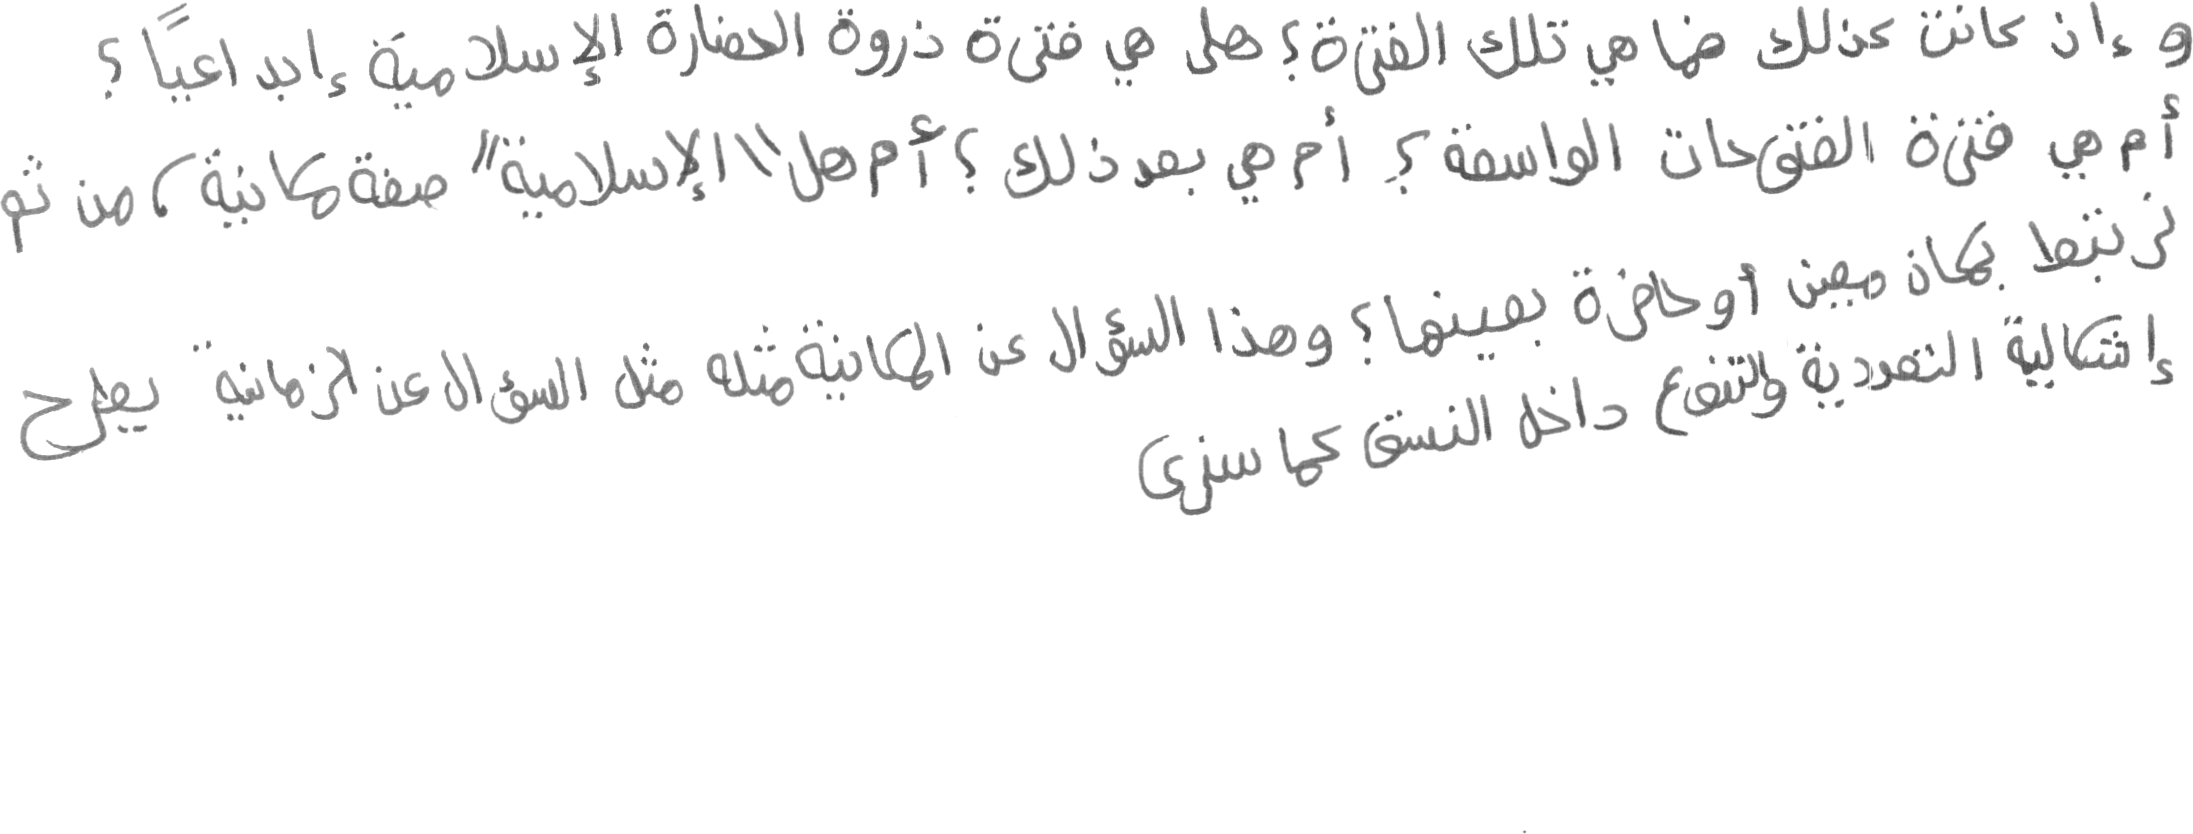 وإن كانت كذلك فما هي تلك الفترة؟ هل هي فترة ذروة الحضارة الإسلامية إبداعيًا؟
أم هي فترة الفتوحات الواسعة؟ أم هي بعد ذلك؟ أم هل "الإسلامية" صفة مكانية، من ثم
ترتبط بمكان معين أو حاضرة بعينها؟ وهذا السؤال عن المكانية مثله مثل السؤال عن الزمانية يطرح
إشكالية التعددية والتنوع داخل النسق كما سنرى